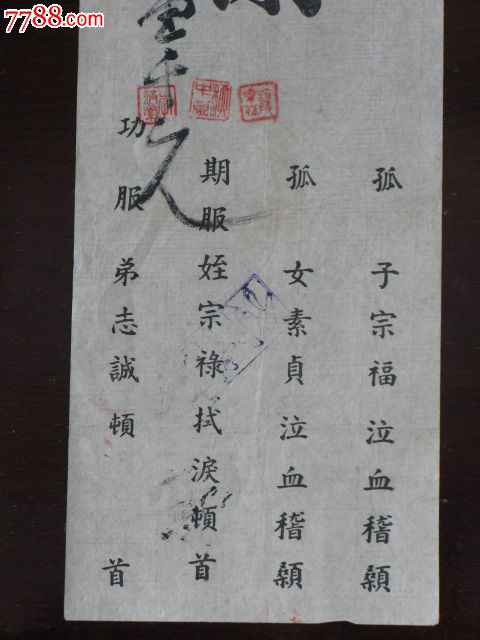 7788.com
孤 子宗福泣血稽顙
孤 女素貞泣血稽顙
期服姪宗祿拭淚頓首
功服弟志誠頓 首